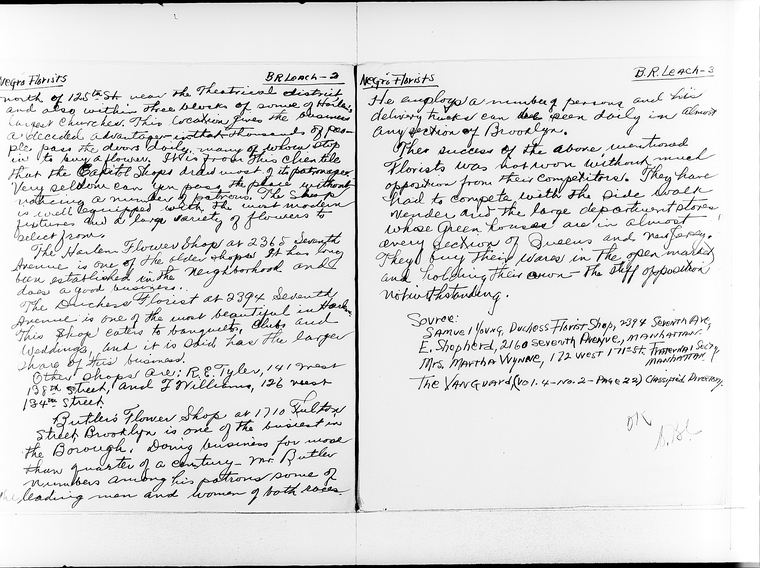 Negro Florists
B.R. Leach-2
north of 125th St. near the Theatrical district
and also within three blocks of some of Harlem's
largest Churches. This location gives the business
a decided advantage in that thousands of peo-
ple pass the doors daily, many of whom stop
in to buy a flower. It is from this clientele
that the Capitol Shops draws most of its patronage.
Very seldom can you pass the place without
noticing a number of patrons. The shop
is well equipped with the most modern
fixtures and a large variety of flowers to
select from.
The Harlem Flower Shop at 2365 Seventh
Avenue is one of the older shops. It has long
been established in the neighborhood and
does a good business.
The Duchess Florist at 2394 Seventh
Avenue is one of the most beautiful in Harlem.
This shop caters to banquets, clubs and
Weddings, and it is said has the larger
share of this business.
Other shops are: R.E. Tyler, 141 west
135th Street, and J Williams, 126 west
134th Street.
Butler's Flower Shop at 1710 Fulton
Street, Brooklyn is one of the busiest in
the Borough. Doing business for more
than quarter of a century - Mr. Butler
numbers among his patrons some of
the leading men and women of both races.
Negro Florists
B.R. Leach-3
He employs a number persons and his
delivery trucks can be seen daily in almost
any section of Brooklyn.
The success of the above mentioned
Florists was not won without much
opposition from their competitors. They have
had to compete with the side walk
vender and the large department stores
whose green houses are in almost
every section of Queens and New Jersey.
They buy their wares in the open market
and holding their own - the stiff opposition
notwithstanding.
Source:
Samuel Young, Duchess Florist Shop, 2394 Seventh Ave,
E. Shepherd, 2160 Seventh Avenue, Manhattan.
Mrs. Martha Wynne, 172 West 171st St. Fraternal Secty,
Manhattan.
The Vanguard (Vol. 4-No. 2-Page 22) Classified Directory.
OK